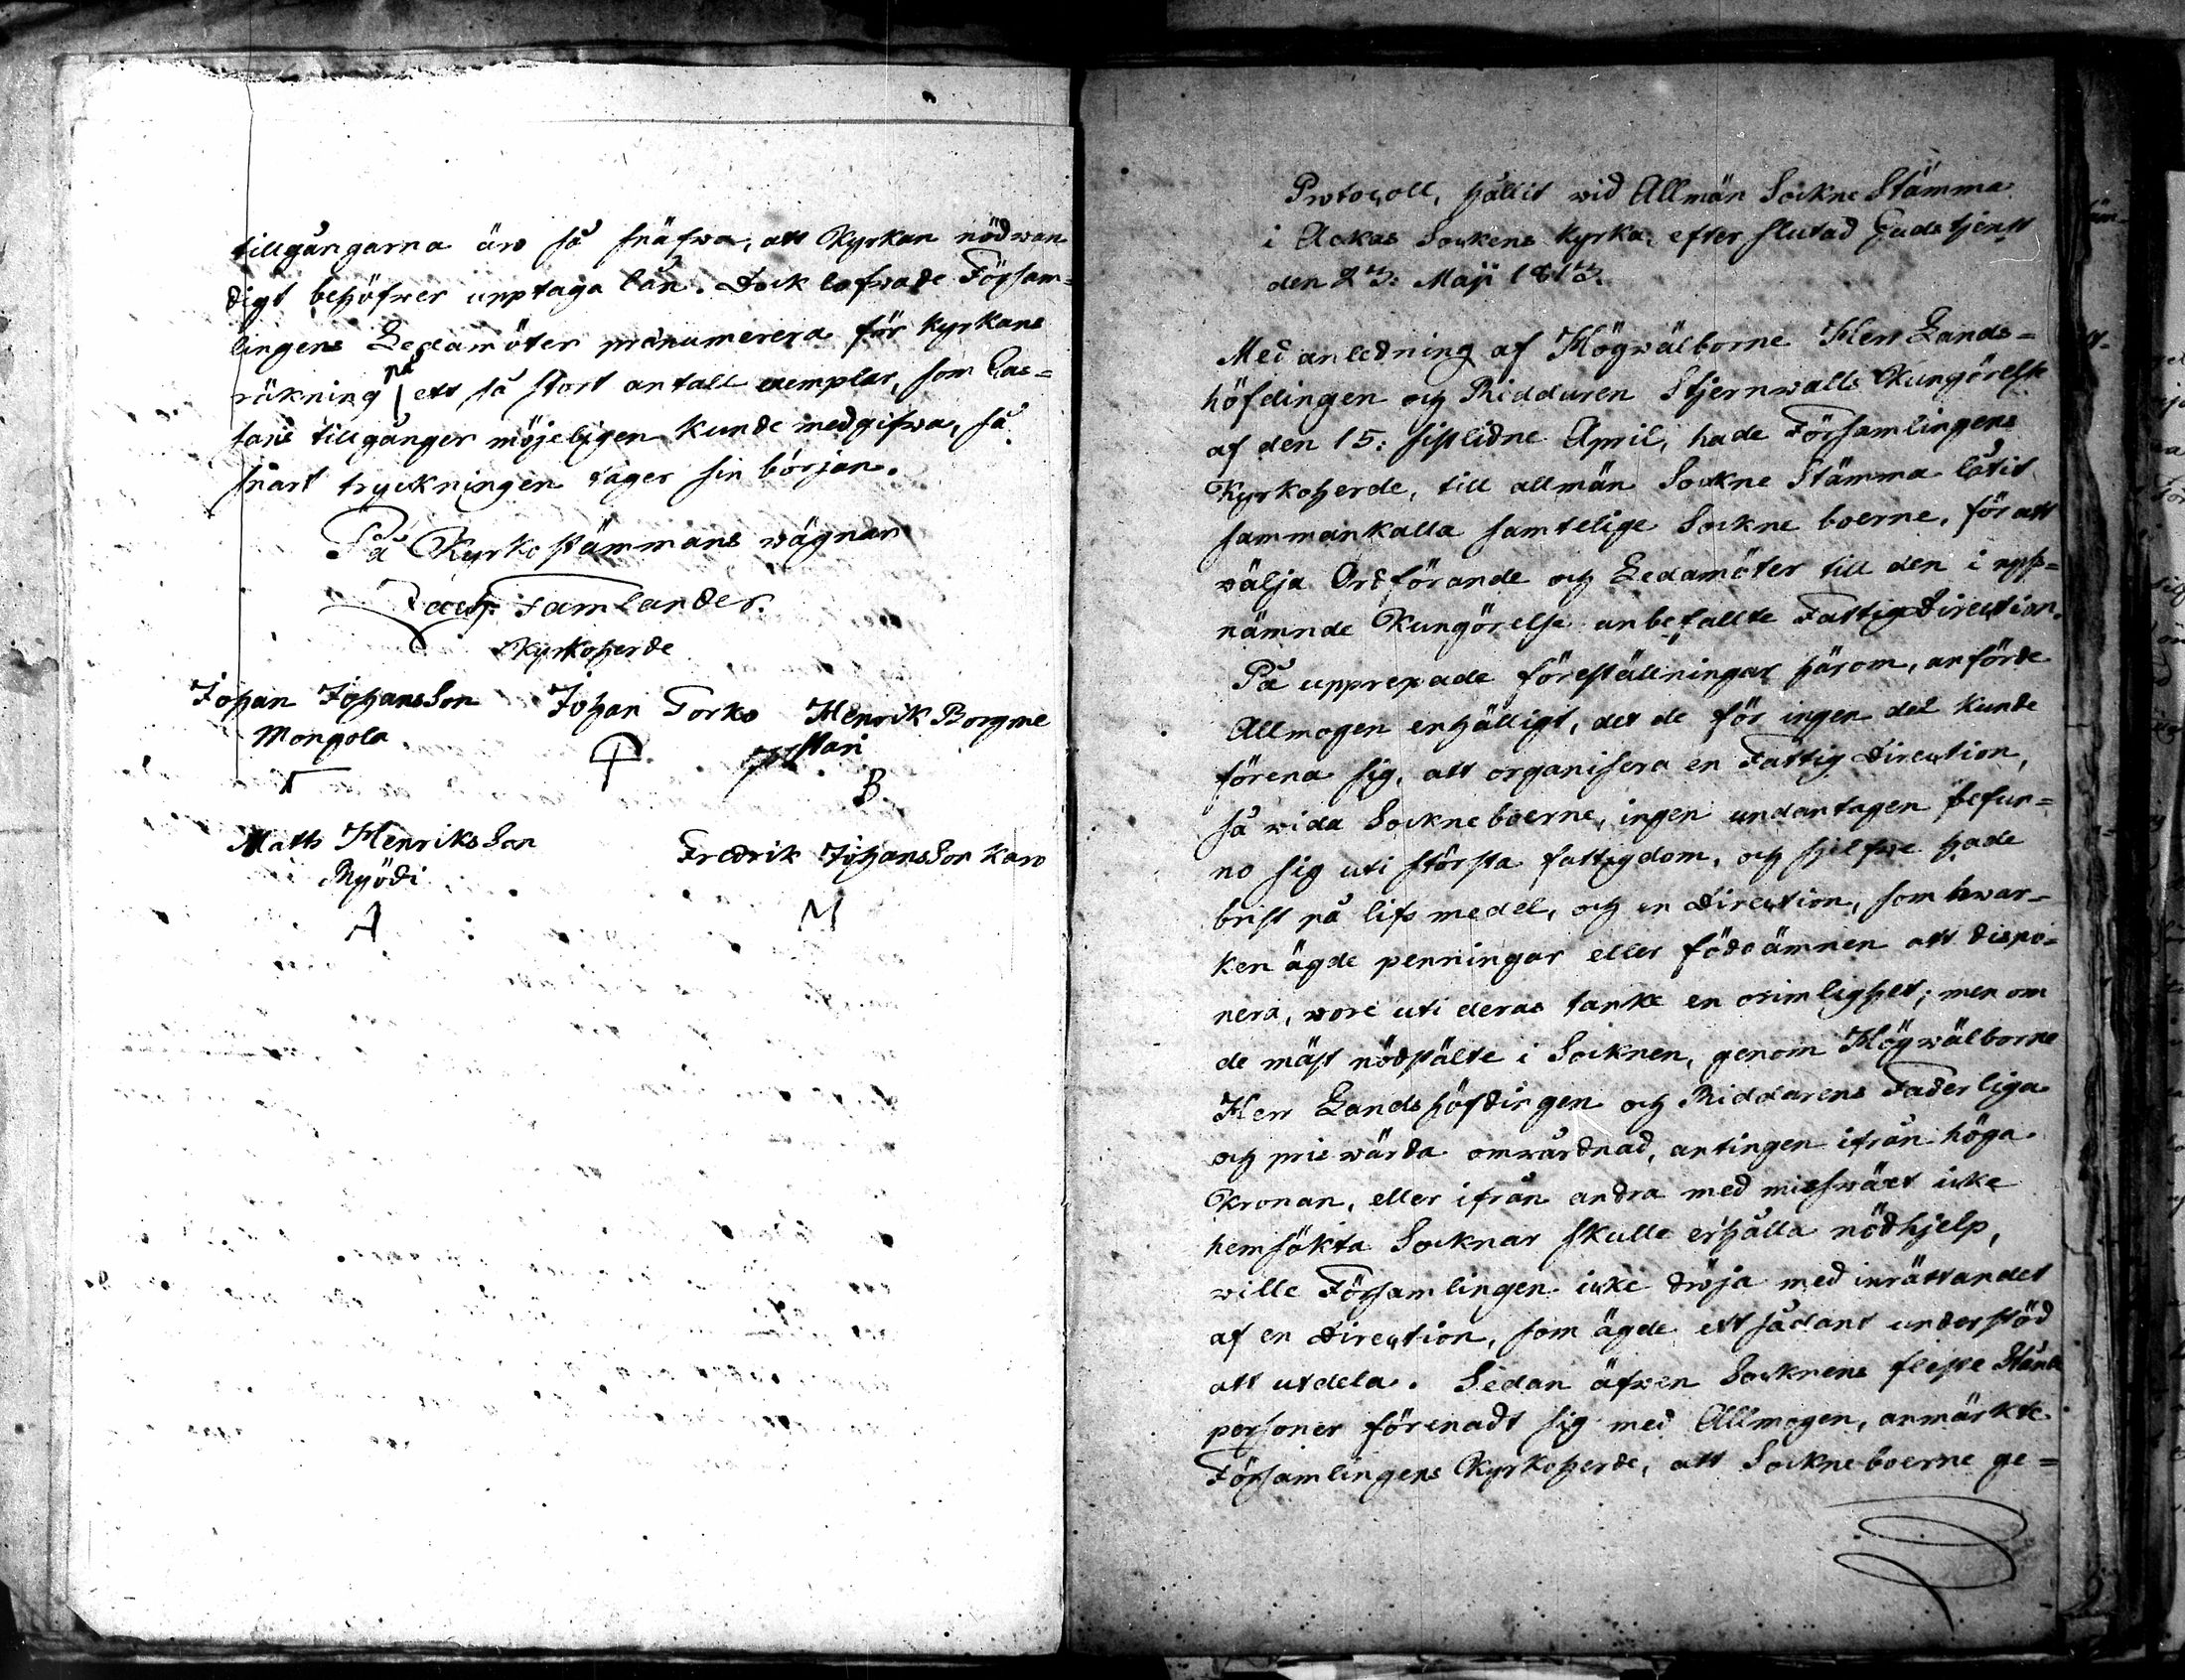 tillgångarna äro så snäfwa, att Kyrkan nödwän
digt behöfwer upptaga lån. Dock lofwade Församlings=
lingens Ledamöter prænumerera för Kyrkans
räkning på ett så stort antall exemplar, som Cas=
sans tillgånger möjeligen kunde medgifwa, så
snart tryckningen tager sin början.
På Kyrkostämmans wägnar
Zach: Famlander.
Kyrkoherde
Johan JohansSon Johan Torko Henrik Borgme
Mongola stari
B
Matts HenriksSon Fredrik JohansSon Karo
Ryödi
A M
Protocoll, hållit wid Allmän Sockne Stämma
i Ackas Sockens Kyrka, efter slutad Gudstjenst
den 23: Maji 1813.
Med anledning af Högwälborne Herr Lands=
höfdingen och Riddaren Stjernwalls Kungörelse
af den 15: sistlidne April, hade Församlingens
Kyrkoherde, till allmän Sockne Stämma låtit
sammankalla samtelige Sockne boerne, för att
wälja Ordförande och Ledamöter till den i opp=
nämnde Kungörelse anbefallte Fattig Direction.
På upprepade föreställningar härom, anförde
Allmogen enhälligt, det de för ingen del kunde
förena sig, att organisera en Fattig Direction,
så wida Sockneboerne, ingen undantagen befun=
no sig uti största fattigdom, och sjelfwe hade
brist på lifsmedel, och en Direction, som hwar=
ken ägde penningar eller födoämnen att dispo=
nera, wore uti deras tanke en orimlighet; men om
de mäst nödstälte i Socknen, genom Högwälborne
Herr Landshöfdingen och Riddarens Faderliga
och priswärda omwårdnad, antingen ifrån höga
Kronan, eller ifrån andra med missväxt icke
hemsökta Socknar skulle erhålla nödhjelp,
wille Församlingen icke dröja med inrättandet
af en Direction, som ägde ett sådant understöd
att utdela. Sedan äfwen Socknens fleste Stånds
personer förenadt sig med Allmogen, anmärkte
Församlingens Kyrkoherde, att Sockneboerne ge=